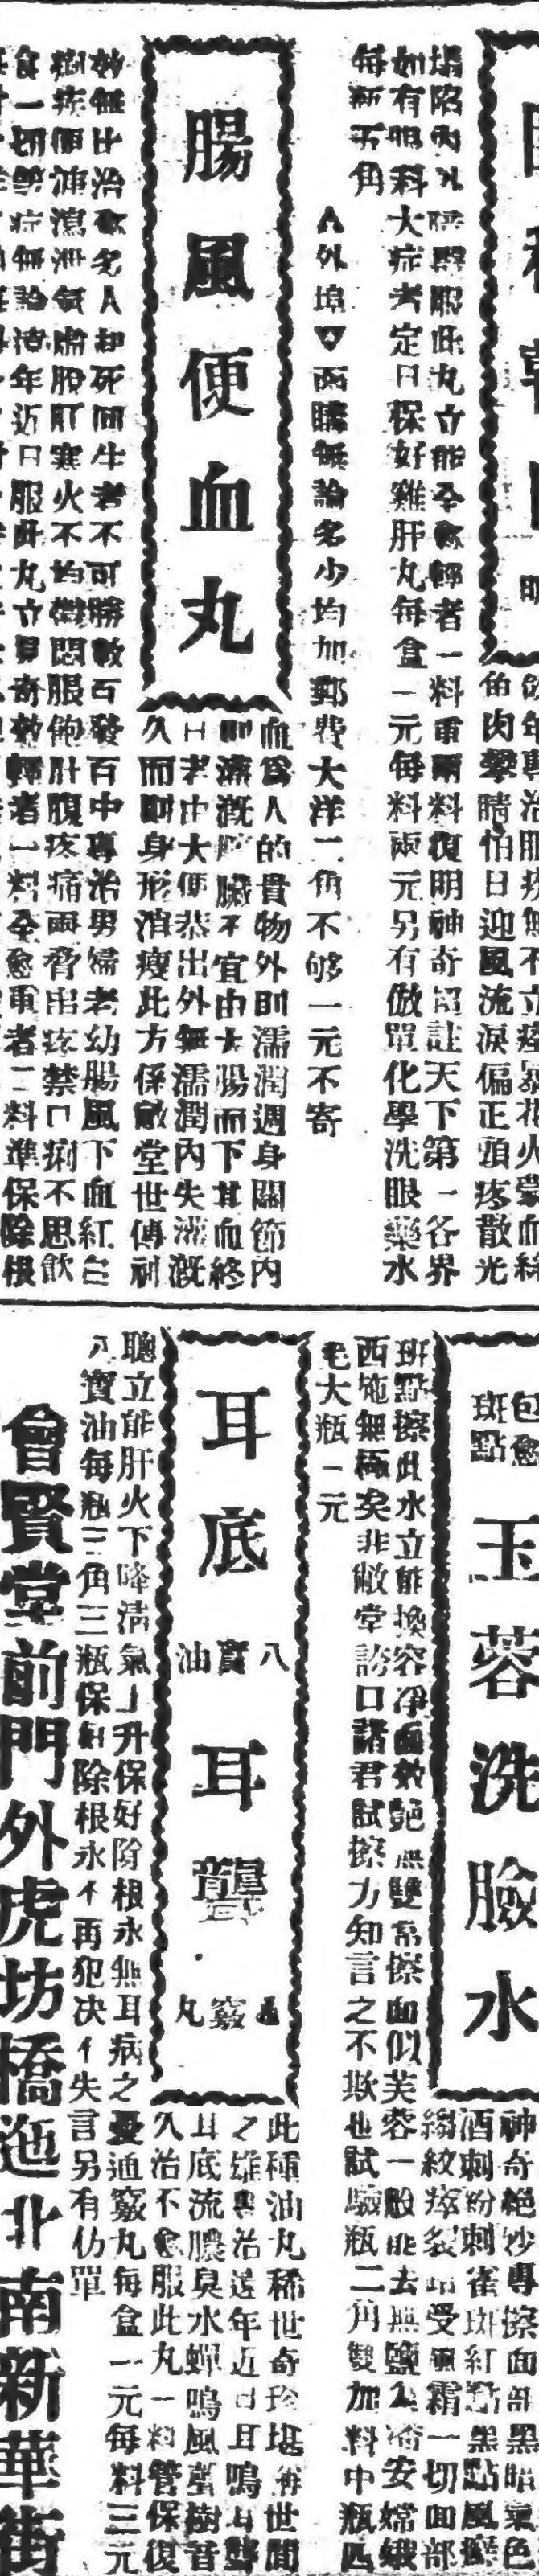 飲年專治眼疾無不立痊暴花火蒙血絲
魚肉攀睛怕日迎風流淚偏正頭疼散光
塌陷內外障翳服此丸立能全愈輕者一料重兩料復明神奇 註天下第一各界
如有眼科大症者定日保好雞肝丸每盒一元每料兩元另有倣單化學洗眼藥水
每瓶五角
外埠 函購無論多少均加郵費大洋二角不够一元不寄
腸風便血丸
血爲人的貴物外則濡潤週身關節內
則灌溉腑臟不宜由大腸而下其血終
日老由大便恭出外無濡潤內失灌溉
久而則身形消瘦此方係敝堂世傳
妙無比治愈多人却死回生者不可勝數百發百中專治男婦老幼腸風下血紅白
痢疾便 瀉泄氣 股肝寒火不均 悶脹飽肚腹疼痛兩脅出疼禁口痢不思飲
食一切 症無論遠年近日服此丸立見奇效輕者一料全愈重者二料準保除根
包愈
斑點
玉蓉洗臉水
神奇絕妙專擦面部黑暗氣色
酒刺粉刺雀斑紅點黑點風癬
縐紋痒裂 受風霜一切面部
斑點擦此水立能換容凈面效艷無雙常擦面似芙蓉一般能去無鹽 安嫦娥
西施無極矣非敝堂誇口諸君試擦方知言之不欺也試驗瓶二角雙加料中瓶四
毛大瓶一元
耳底
八寶油
耳聾
竅丸
此種油丸稀世奇珍堪稱世間
之雄專治遠年近日耳鳴耳聾
耳底流膿臭水蟬鳴風 樹音
久治不愈服此丸一料管保復
聰立能肝火下降清氣上升保好除根永無耳病之憂通竅丸每盒一元每料三元
八寶油每瓶三角三瓶保 除根永不再犯决不失言另有仿單
會賢堂前門外虎坊橋迤北南新華街